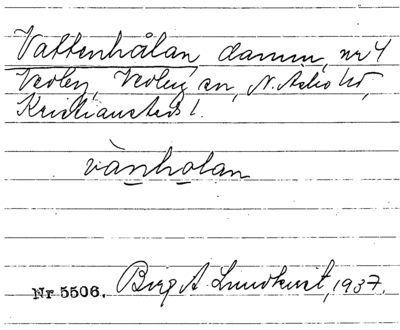 Vattenhålan, damm, nr 4
Verby, Verby sn, N. Åsbo hd,
Kristianstads l.
vànholan
Nr 5506. Birg A. Lundkvist, 1937.